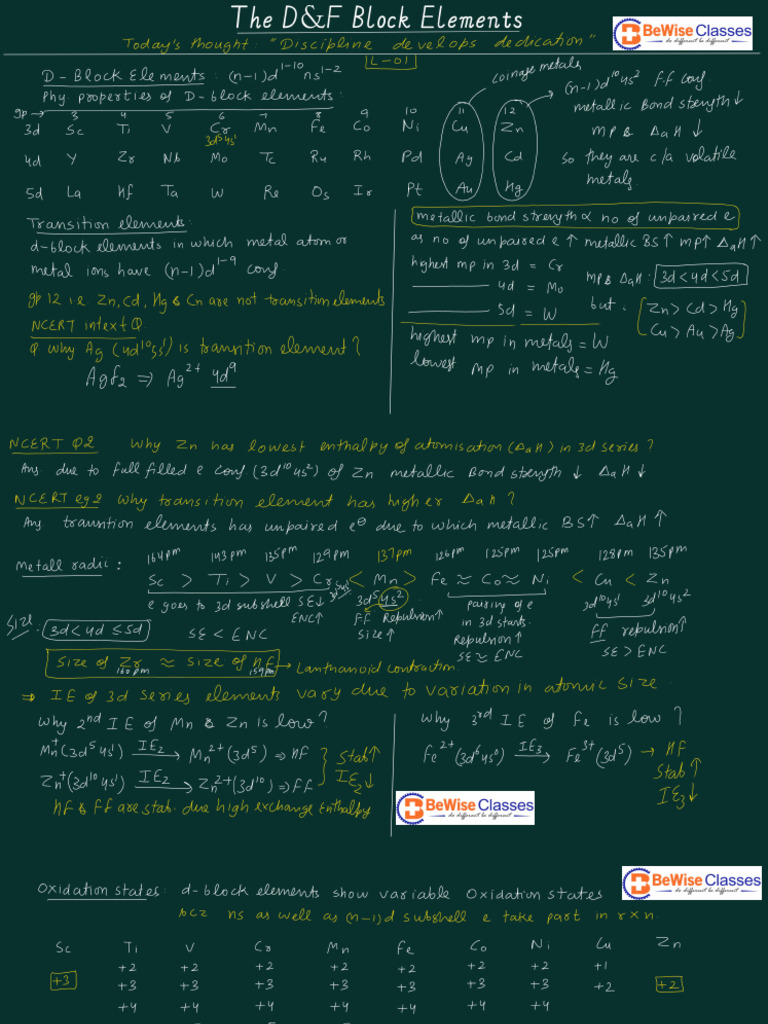 The D&F Block Elements
BeWise Classes
do different be different
Today's thought: "Discipline develops dedication"
L-01
D-Block Elements: (n-1)d¹⁻¹⁰ns¹⁻²
Phy properties of D-block elements:
coinage metals
gp → 3 4 5 6 7 8 9 10 11 12
3d Sc Ti V Cr Mn Fe Co Ni Cu Zn
3d⁵4s¹
4d Y Zr Nb Mo Tc Ru Rh Pd Ag Cd
5d La Hf Ta W Re Os Ir Pt Au Hg
(n-1)d¹⁰ns² F.F conf.
metallic Bond strength↓
MP & ΔaH ↓
so they are c/a volatile
metals.
Transition elements:
d-block elements in which metal atom or
metal ions have (n-1)d¹⁻⁹ conf.
gp 12 i.e. Zn, Cd, Hg & Cn are not transition elements
NCERT intext Q.
Q why Ag (4d¹⁰5s¹) is transition element?
AgF₂ ⇒ Ag²⁺ 4d⁹
metallic bond strength ∝ no of unpaired e
as no of unpaired e ↑ metallic BS↑ MP↑ ΔaH↑
highest mp in 3d = Cr
4d = Mo
5d = W
MP & ΔaH: 3d<4d<5d
but. Zn > Cd > Hg
Cu > Au > Ag
highest mp in metals = W
lowest mp in metals = Hg
NCERT Q2 why Zn has lowest enthalpy of atomisation (ΔaH) in 3d series?
Ans. due to full filled e conf. (3d¹⁰4s²) of Zn metallic Bond strength ↓ ΔaH↓
NCERT eg 2 why transition element has higher ΔaH?
Ans trasntion elements has unpaired e⊖ due to which metallic BS↑ ΔaH↑
Metall radii: 164pm 143pm 135pm 129pm 137pm 126pm 125pm 125pm 128pm 135pm
Sc > Ti > V > Cr < Mn > Fe ≈ Co ≈ Ni < Cu < Zn
3d⁵4s¹ 3d⁵4s² 3d¹⁰4s¹ 3d¹⁰4s²
e goes to 3d subshell SE↓
ENC↑
FF Repulsion↑
size↑
pairing of e
in 3d starts.
Repulsion↑
SE ≈ ENC
FF repulsion↑
SE > ENC
Size. 3d<4d≤5d SE < ENC
Size of Zr ≈ size of Hf → Lanthanoid contraction.
160pm 159pm
⇒ IE of 3d series elements vary due to variation in atomic size.
why 2nd IE of Mn & Zn is low?
Mn⁺(3d⁵4s¹) IE₂ → Mn²⁺(3d⁵) ⇒ HF
Zn⁺(3d¹⁰4s¹) IE₂ → Zn²⁺(3d¹⁰) ⇒ FF
Stab↑
IE₂↓
HF & FF are stab. due high exchange Enthalpy
why 3rd IE of Fe is low?
Fe²⁺(3d⁶4s⁰) IE₃ → Fe³⁺(3d⁵) → HF
Stab↑
IE₃↓
BeWise Classes
do different be different
BeWise Classes
do different be different
Oxidation states: d-block elements show variable oxidation states
bcz ns as well as (n-1)d subshell e take part in rxn.
Sc Ti V Cr Mn Fe Co Ni Cu Zn
+2 +2 +2 +2 +2 +2 +2 +1
+3 +3 +3 +3 +3 +3 +3 +3 +2 +2
+4 +4 +4 +4 +4 +4 +4